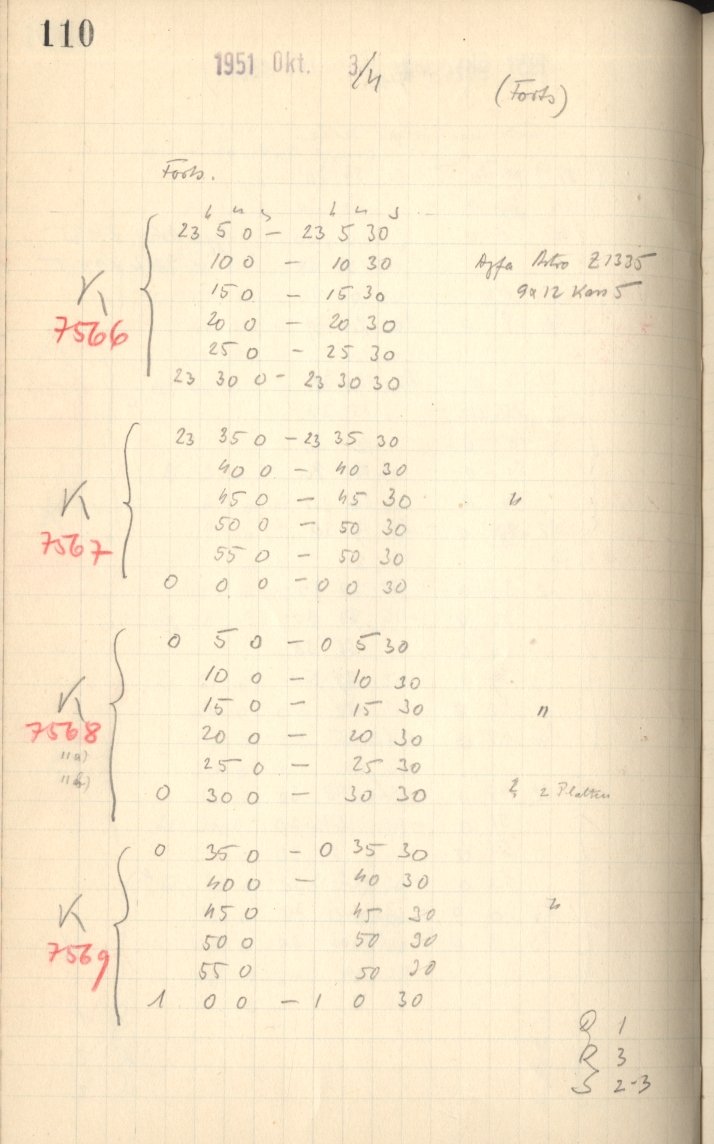 110
1951 Okt. 3/4
(Forts)
Forts.
h m s h m s
23 5 0 - 23 5 30
10 0 - 10 30 Agfa Astro Z1335
K 15 0 - 15 30 9x12 Kass 5
7566 20 0 - 20 30
25 0 - 25 30
23 30 0 - 23 30 30
23 35 0 - 23 35 30
40 0 - 40 30
K 45 0 - 45 30 "
50 0 - 50 30
7567 55 0 - 50 30
0 0 0 - 0 0 30
0 5 0 - 0 5 30
10 0 - 10 30
K 15 0 - 15 30 "
7568 20 0 - 20 30
"a) 25 0 - 25 30
"b)
0 30 0 - 30 30 2 Platten
0 35 0 - 0 35 30
40 0 - 40 30
K 45 0 45 30 "
7569 50 0 50 30
55 0 50 30
1 0 0 - 1 0 30
Q 1
R 3
S 2-3